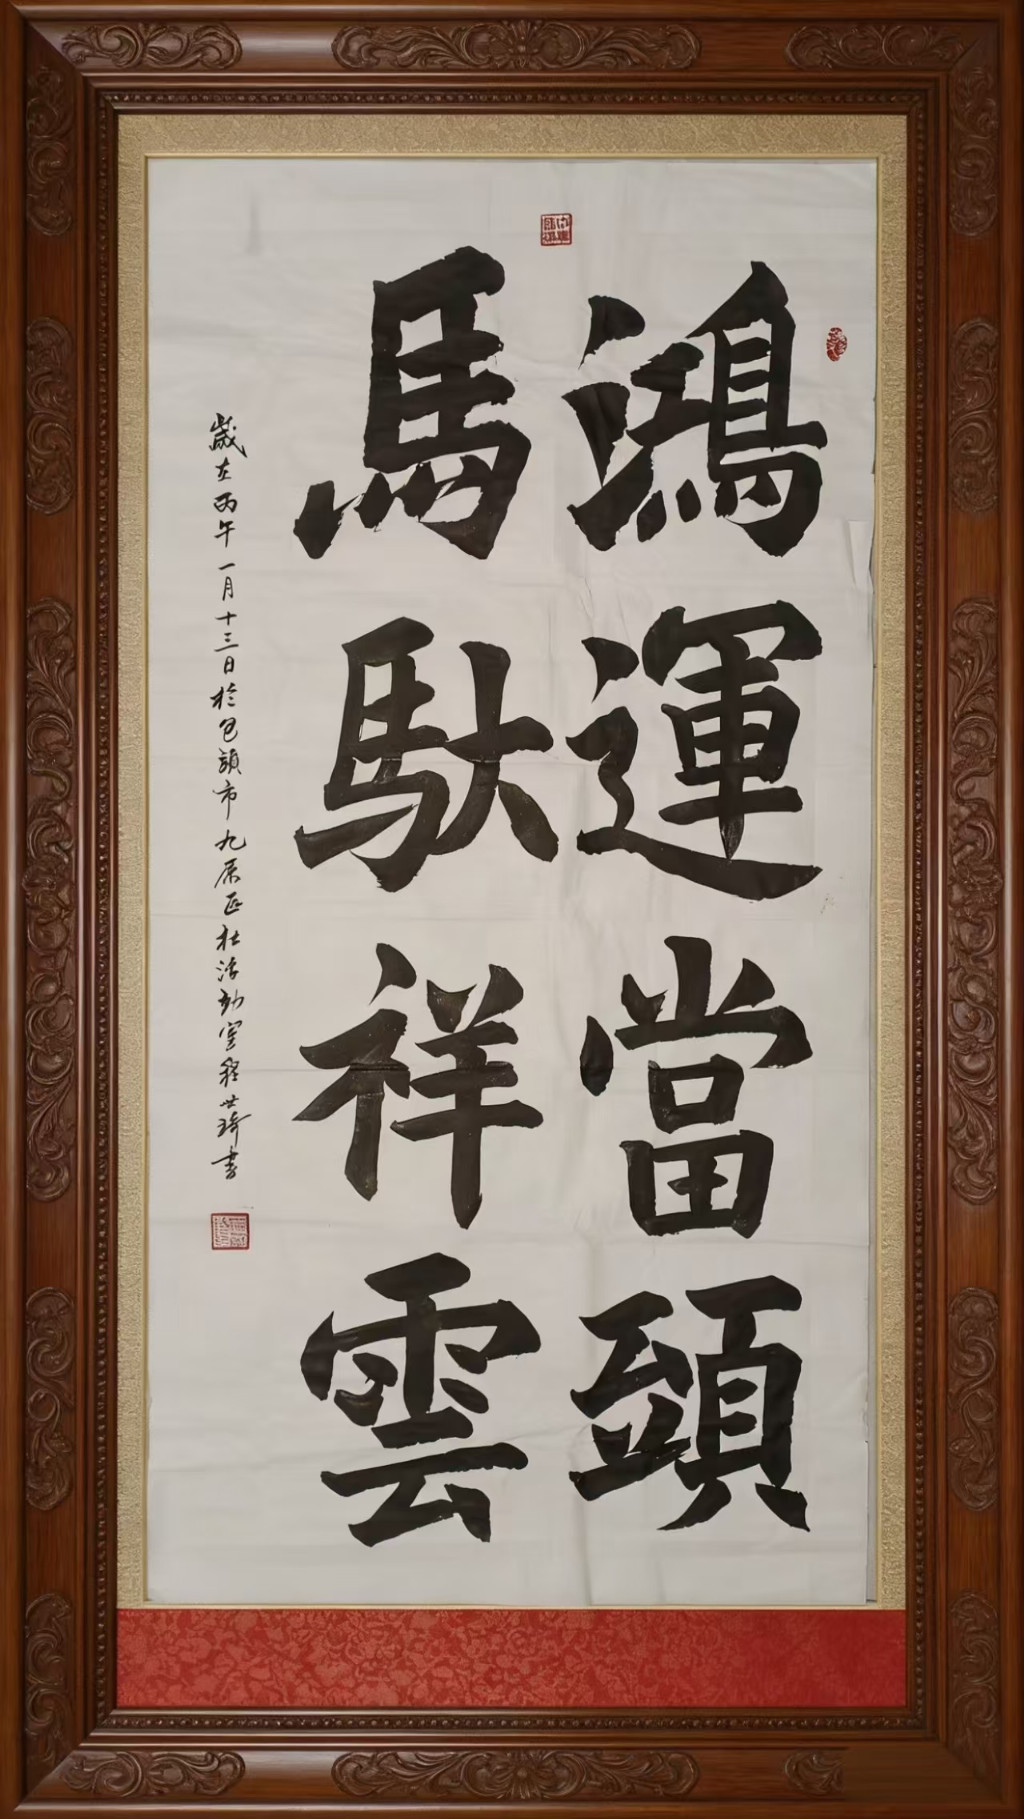 鴻運當頭
馬馱祥雲
歲在丙午一月十三日於包頭市九原區
世琦書